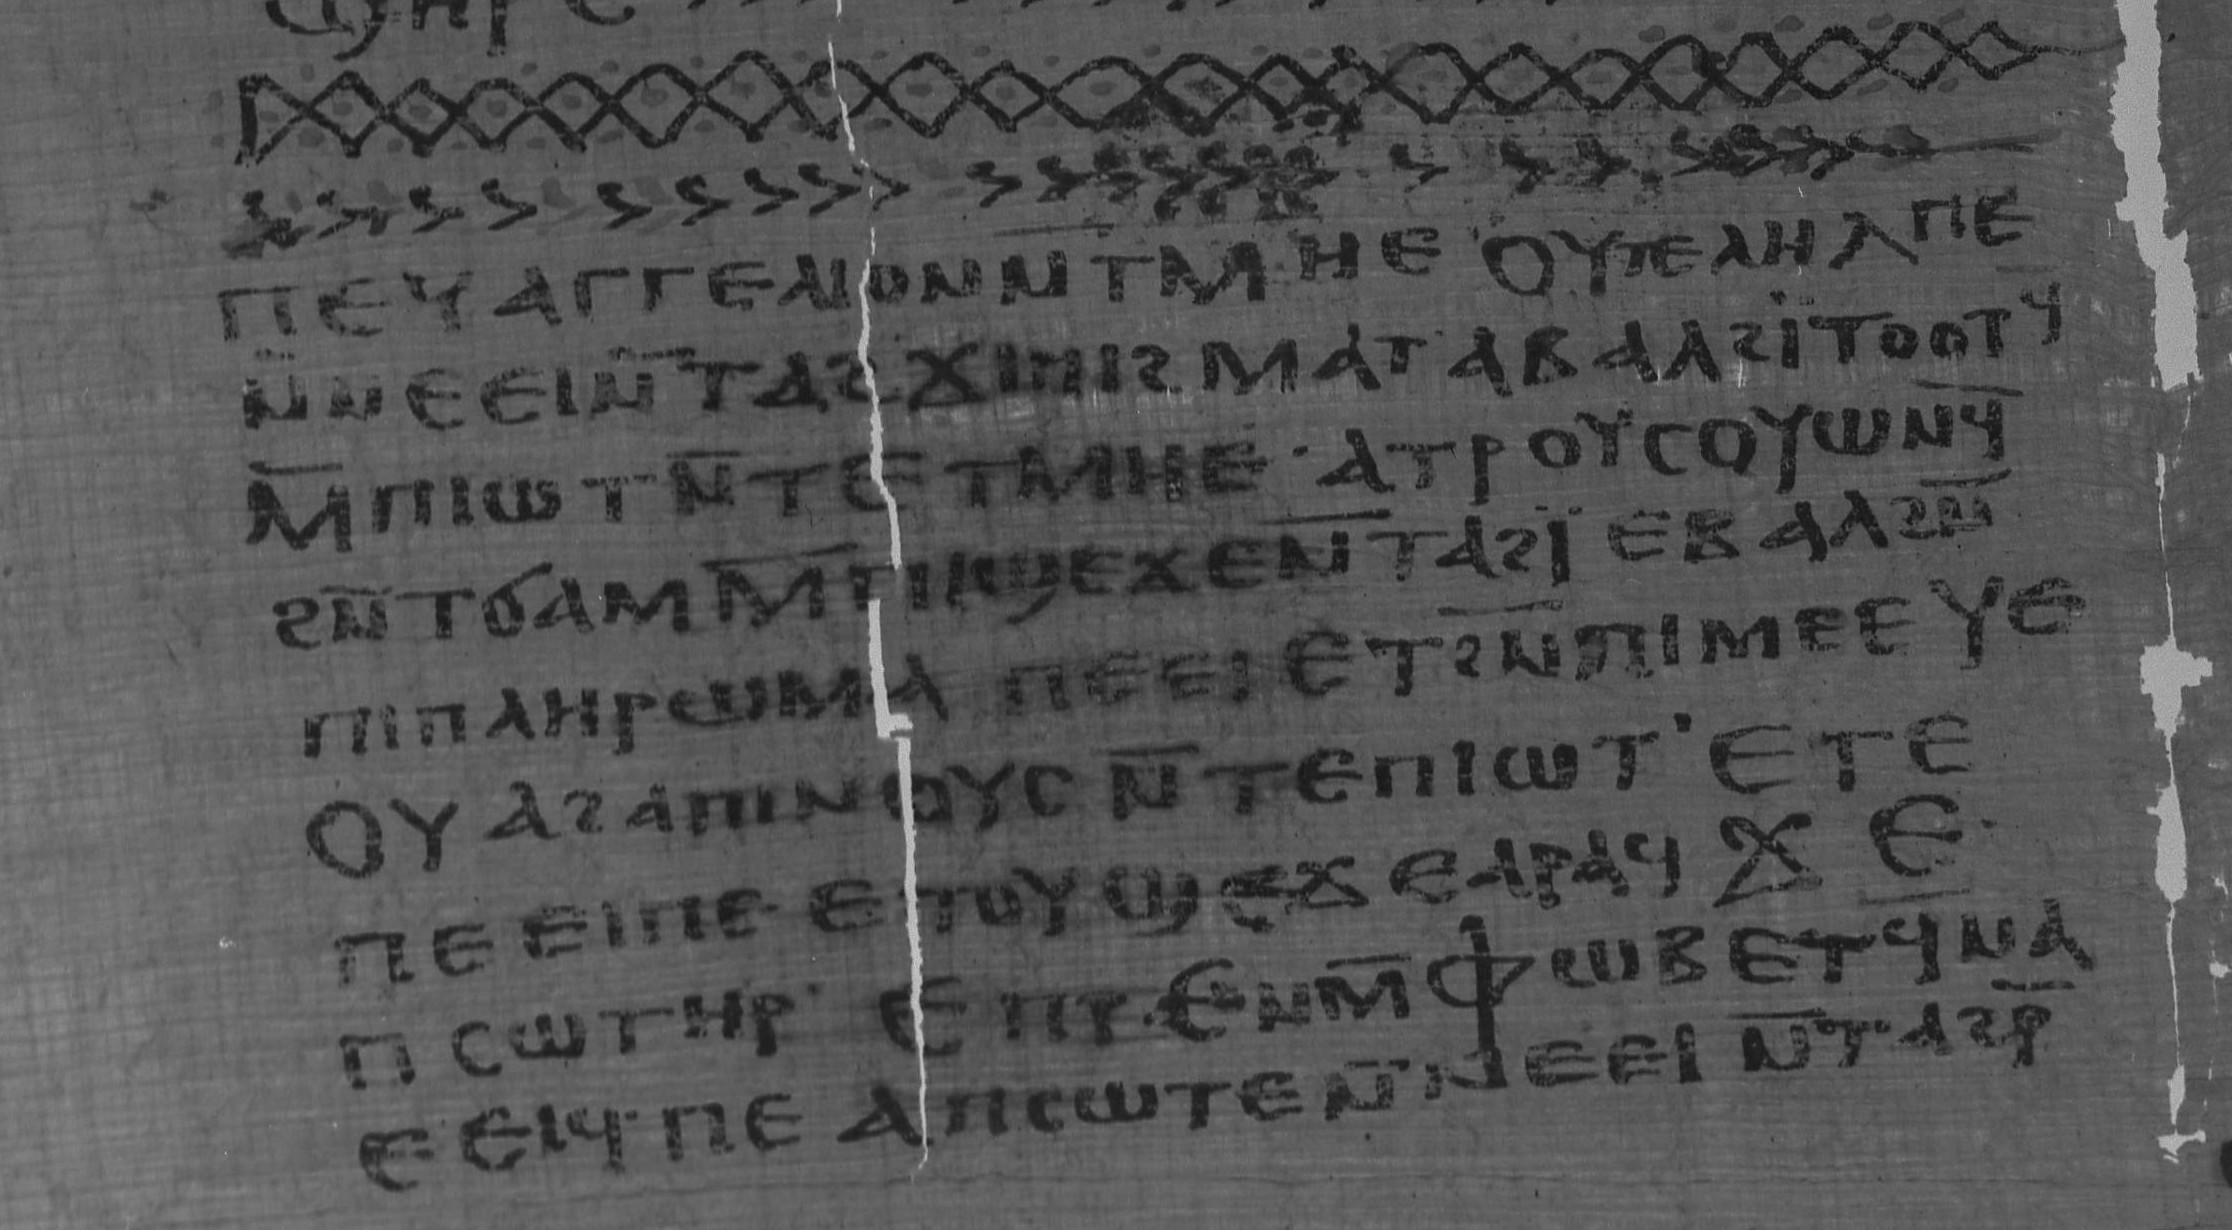 ϣⲏⲣⲉ > > > > > > > > >
> > > > > > > > > > > > > > > > > > > > >
ⲡⲉⲩⲁⲅⲅⲉⲗⲓⲟⲛ ⲛ̄ⲧⲙⲏⲉ ⲟⲩⲧⲉⲗⲏⲗ ⲡⲉ
ⲛ̄ⲛⲉⲉⲓ ⲛ̄ⲧⲁϩϫⲓ ⲡⲓϩⲙⲁⲧ ⲁⲃⲁⲗ ϩⲓ̈ⲧⲟⲟⲧϥ̄
ⲙ̄ⲡⲓⲱⲧ ⲛ̄ⲧⲉ ⲧⲙⲏⲉ · ⲁⲧⲣⲟⲩⲥⲟⲩⲱⲛϥ̄
ϩⲛ̄ ⲧϭⲁⲙ ⲙ̄ⲡⲓϣⲉϫⲉ ⲛ̄ⲧⲁϩⲓ̈ ⲉⲃⲁⲗ ϩⲛ̄
ⲡⲓⲡⲗⲏⲣⲱⲙⲁ ⲡⲉⲉⲓ ⲉⲧϩⲛ̄ ⲡⲓⲙⲉⲉⲩⲉ
ⲟⲩⲁϩⲁ ⲡⲓⲛⲟⲩⲥ ⲛ̄ⲧⲉ ⲡⲓⲱⲧ · ⲉⲧⲉ
ⲡⲉⲉⲓ ⲡⲉ ⲉⲧⲟⲩϣⲉϫⲉ ⲁⲣⲁϥ ϫⲉ
ⲡⲥⲱⲧⲏⲣ · ⲉⲡⲣⲉⲛ ⲙ̄ⲫⲱⲃ ⲉⲧϥ̄ⲛⲁ
ⲉⲉⲓϥ ⲡⲉ ⲁⲡⲥⲱⲧⲉ ⲛ̄ⲛⲉⲉⲓ ⲛ̄ⲧⲁϩⲣ̄